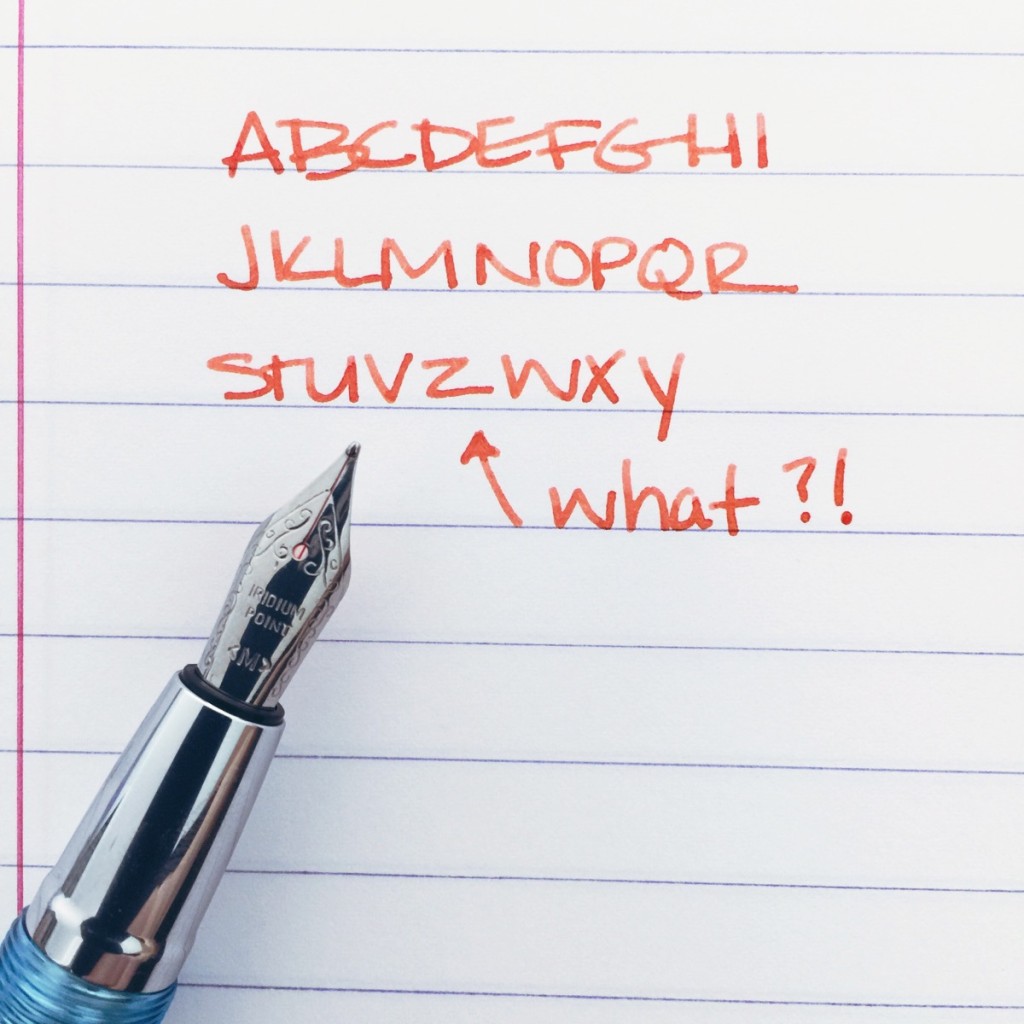 ABCDEFGHI
JKLMNOPQR
STUVZWXY
what?!
IRIDIUM
POINT
<M>